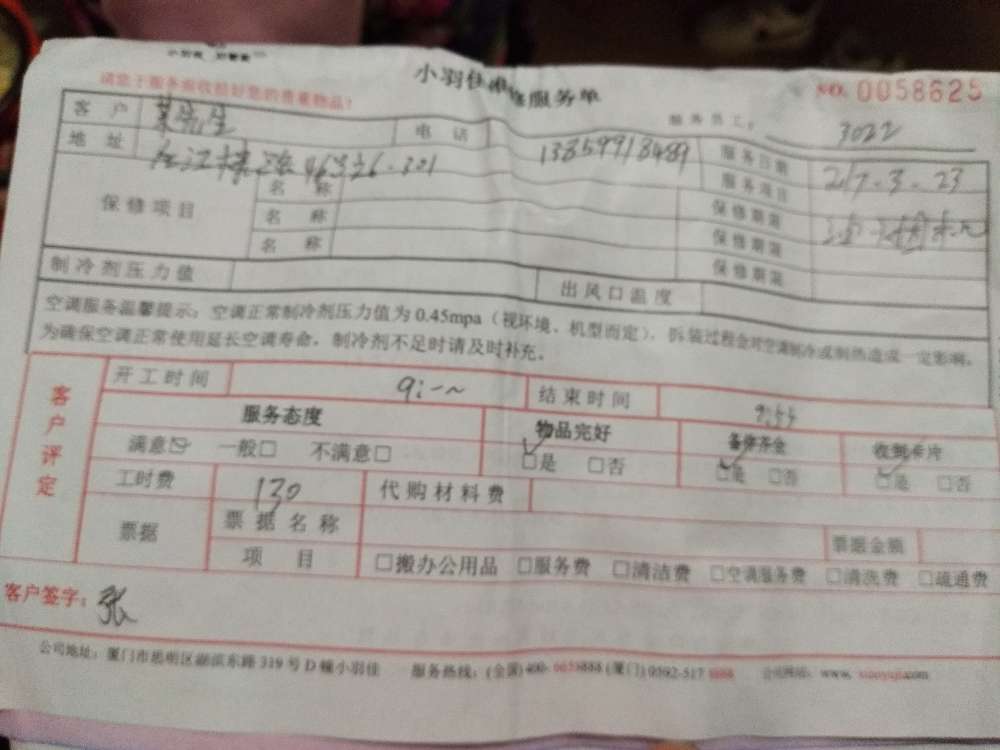 小羽佳 维修服务单
NO. 0058625
请您于服务前收拾好您的贵重物品!
服务员工: 3022
客户 先生 电话 13859918489 服务日期 217.3.23
地址 46号 301 服务项目
保修项目 名称 保修期限
名称 保修期限
名称 保修期限
制冷剂压力值 出风口温度
空调服务温馨提示:空调正常制冷剂压力值为0.45mpa(视环境、机型而定),拆装过程会对空调制冷或制热造成一定影响,
为确保空调正常使用延长空调寿命,制冷剂不足时请及时补充。
客户评定
开工时间 9: 结束时间
服务态度 物品完好 备件齐全 收到卡片
满意☑ 一般□ 不满意□ ☑是 □否 ☑是 □否 ☑是 □否
工时费 130 代购材料费
票据 票据名称 票据金额
项目 □搬办公用品 □服务费 □清洁费 □空调服务费 □清洗费 □疏通费
客户签字: 张
公司地址:厦门市思明区湖滨东路319号D幢小羽佳 服务热线:(全国)400- (厦门)0592-517 公司网站:www. xiaoyujia.com